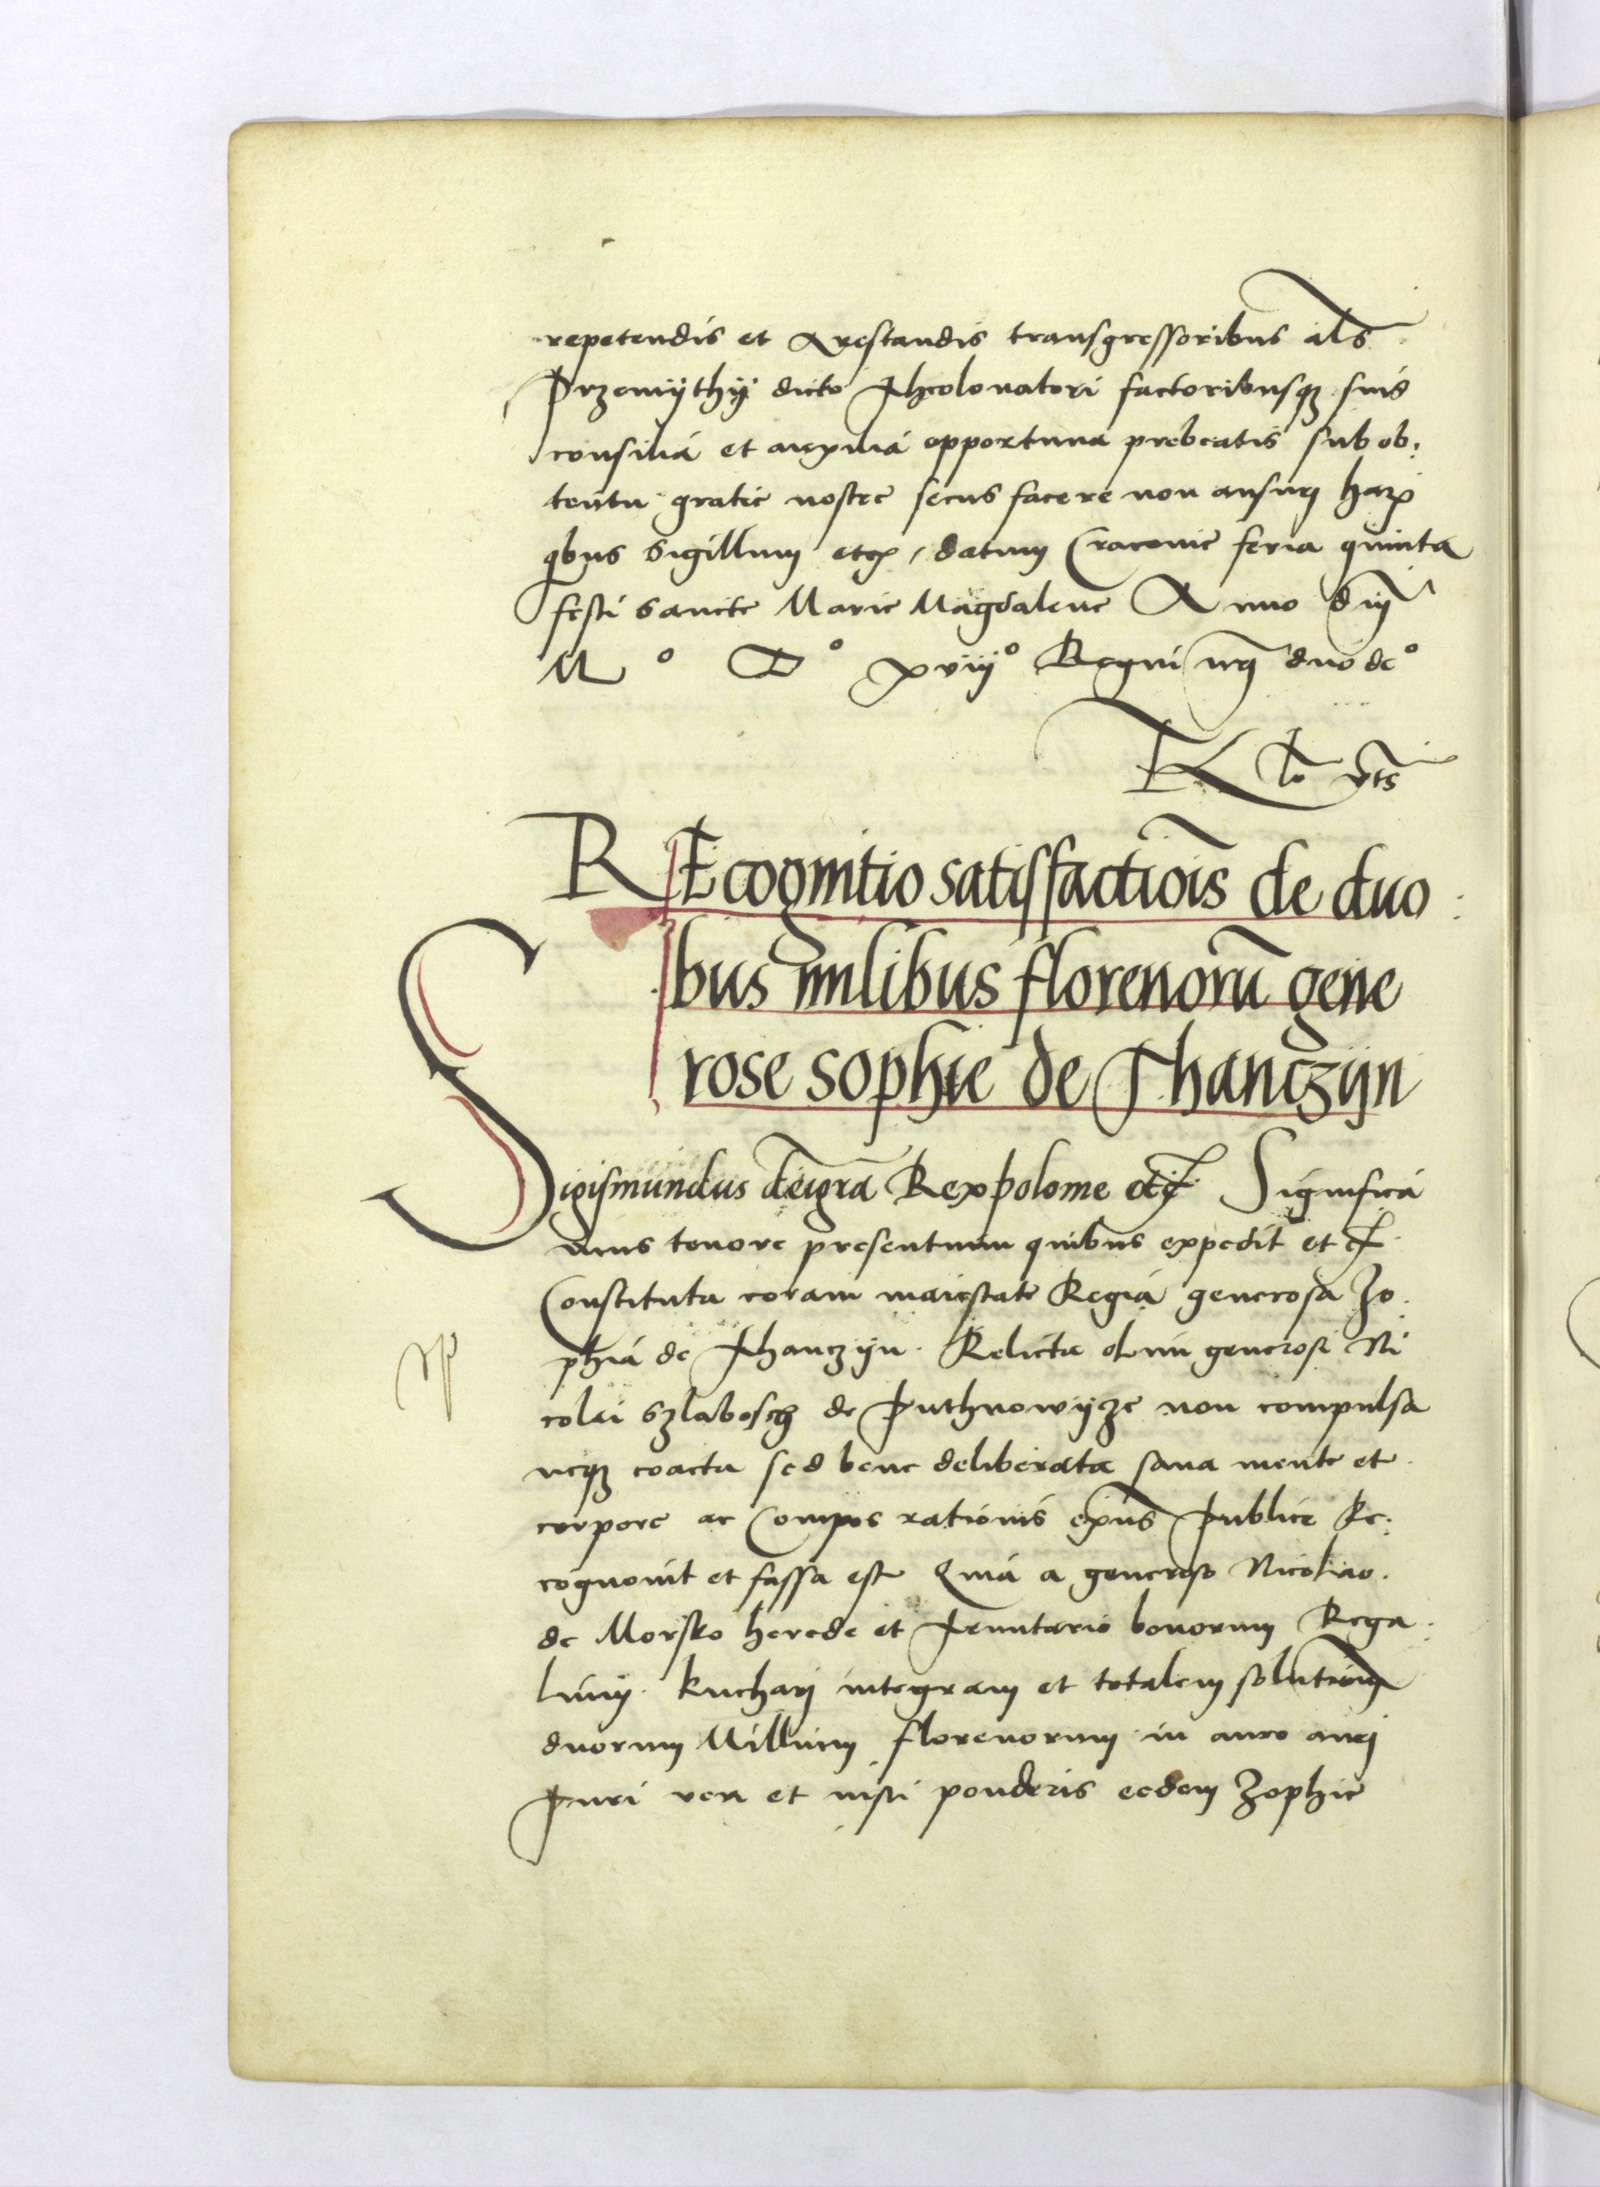 repetendis et Arestandis transgressoribus als
Przemythy dicto Theolonatori factoribusq suis
consilia et auxilia opportuna prebeatis sub ob
tentu gratie nostre secus facere non ansuri harum
qbus Sigillum etc / datum Cracovie feria quinta
festi Sancte Marie Magdalene Anno dni
Mo Do xviiio Regni nri duodeo
REcognitio satisfactiois de duo
bus milibus florenoru gene
rose sophie de Thanczyn
Sigismundus dei gra Rex polonie etc Significa
mus tenore presentium quibus expedit et c
Constituta coram maiestate Regia generosa Zo
phia de Thanczyn Relicta olim generosi Ni
colai Szlabosch de Puthnowyze non compulsa
neq coacta sed bene deliberata sana mente et
corpore ac Compos rationis exns Publice Re
cognovit et fassa est Quia a generoso Nicolao
de Morsko herede et Tenutario bonorum Rega
lium Kuchari integram et totalem solutionem
duorum Millium florenorum in auro auri
Puri veri et iusti ponderis eedem Zophie